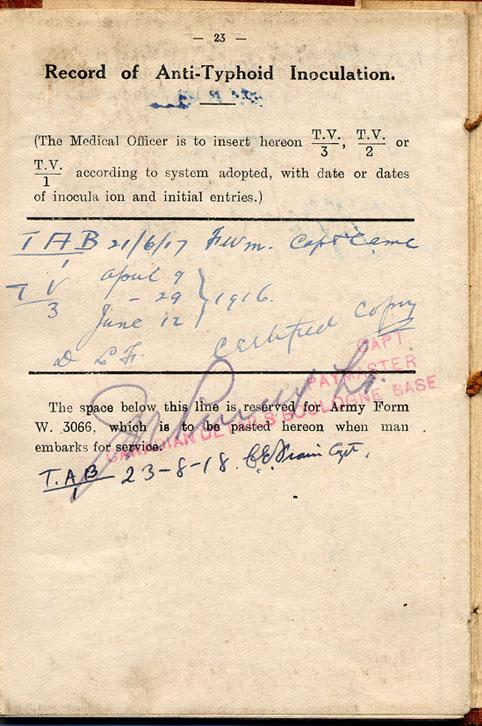 — 23 —
Record of Anti-Typhoid Inoculation.
(The Medical Officer is to insert hereon T.V./3, T.V./2 or
T.V./1 according to system adopted, with date or dates
of inocula ion and initial entries.)
TAB/1 21/6/17 F.W.m. Capt Camc
TV/3 April 9
- 29 } 1916.
June 12
Certified Copy
CAPT
PAYMASTER
CANADIAN DETAILS BOULOGNE BASE
The space below this line is reserved for Army Form
W. 3066, which is to be pasted hereon when man
embarks for service.
T.A.B/1 23-8-18 Capt.